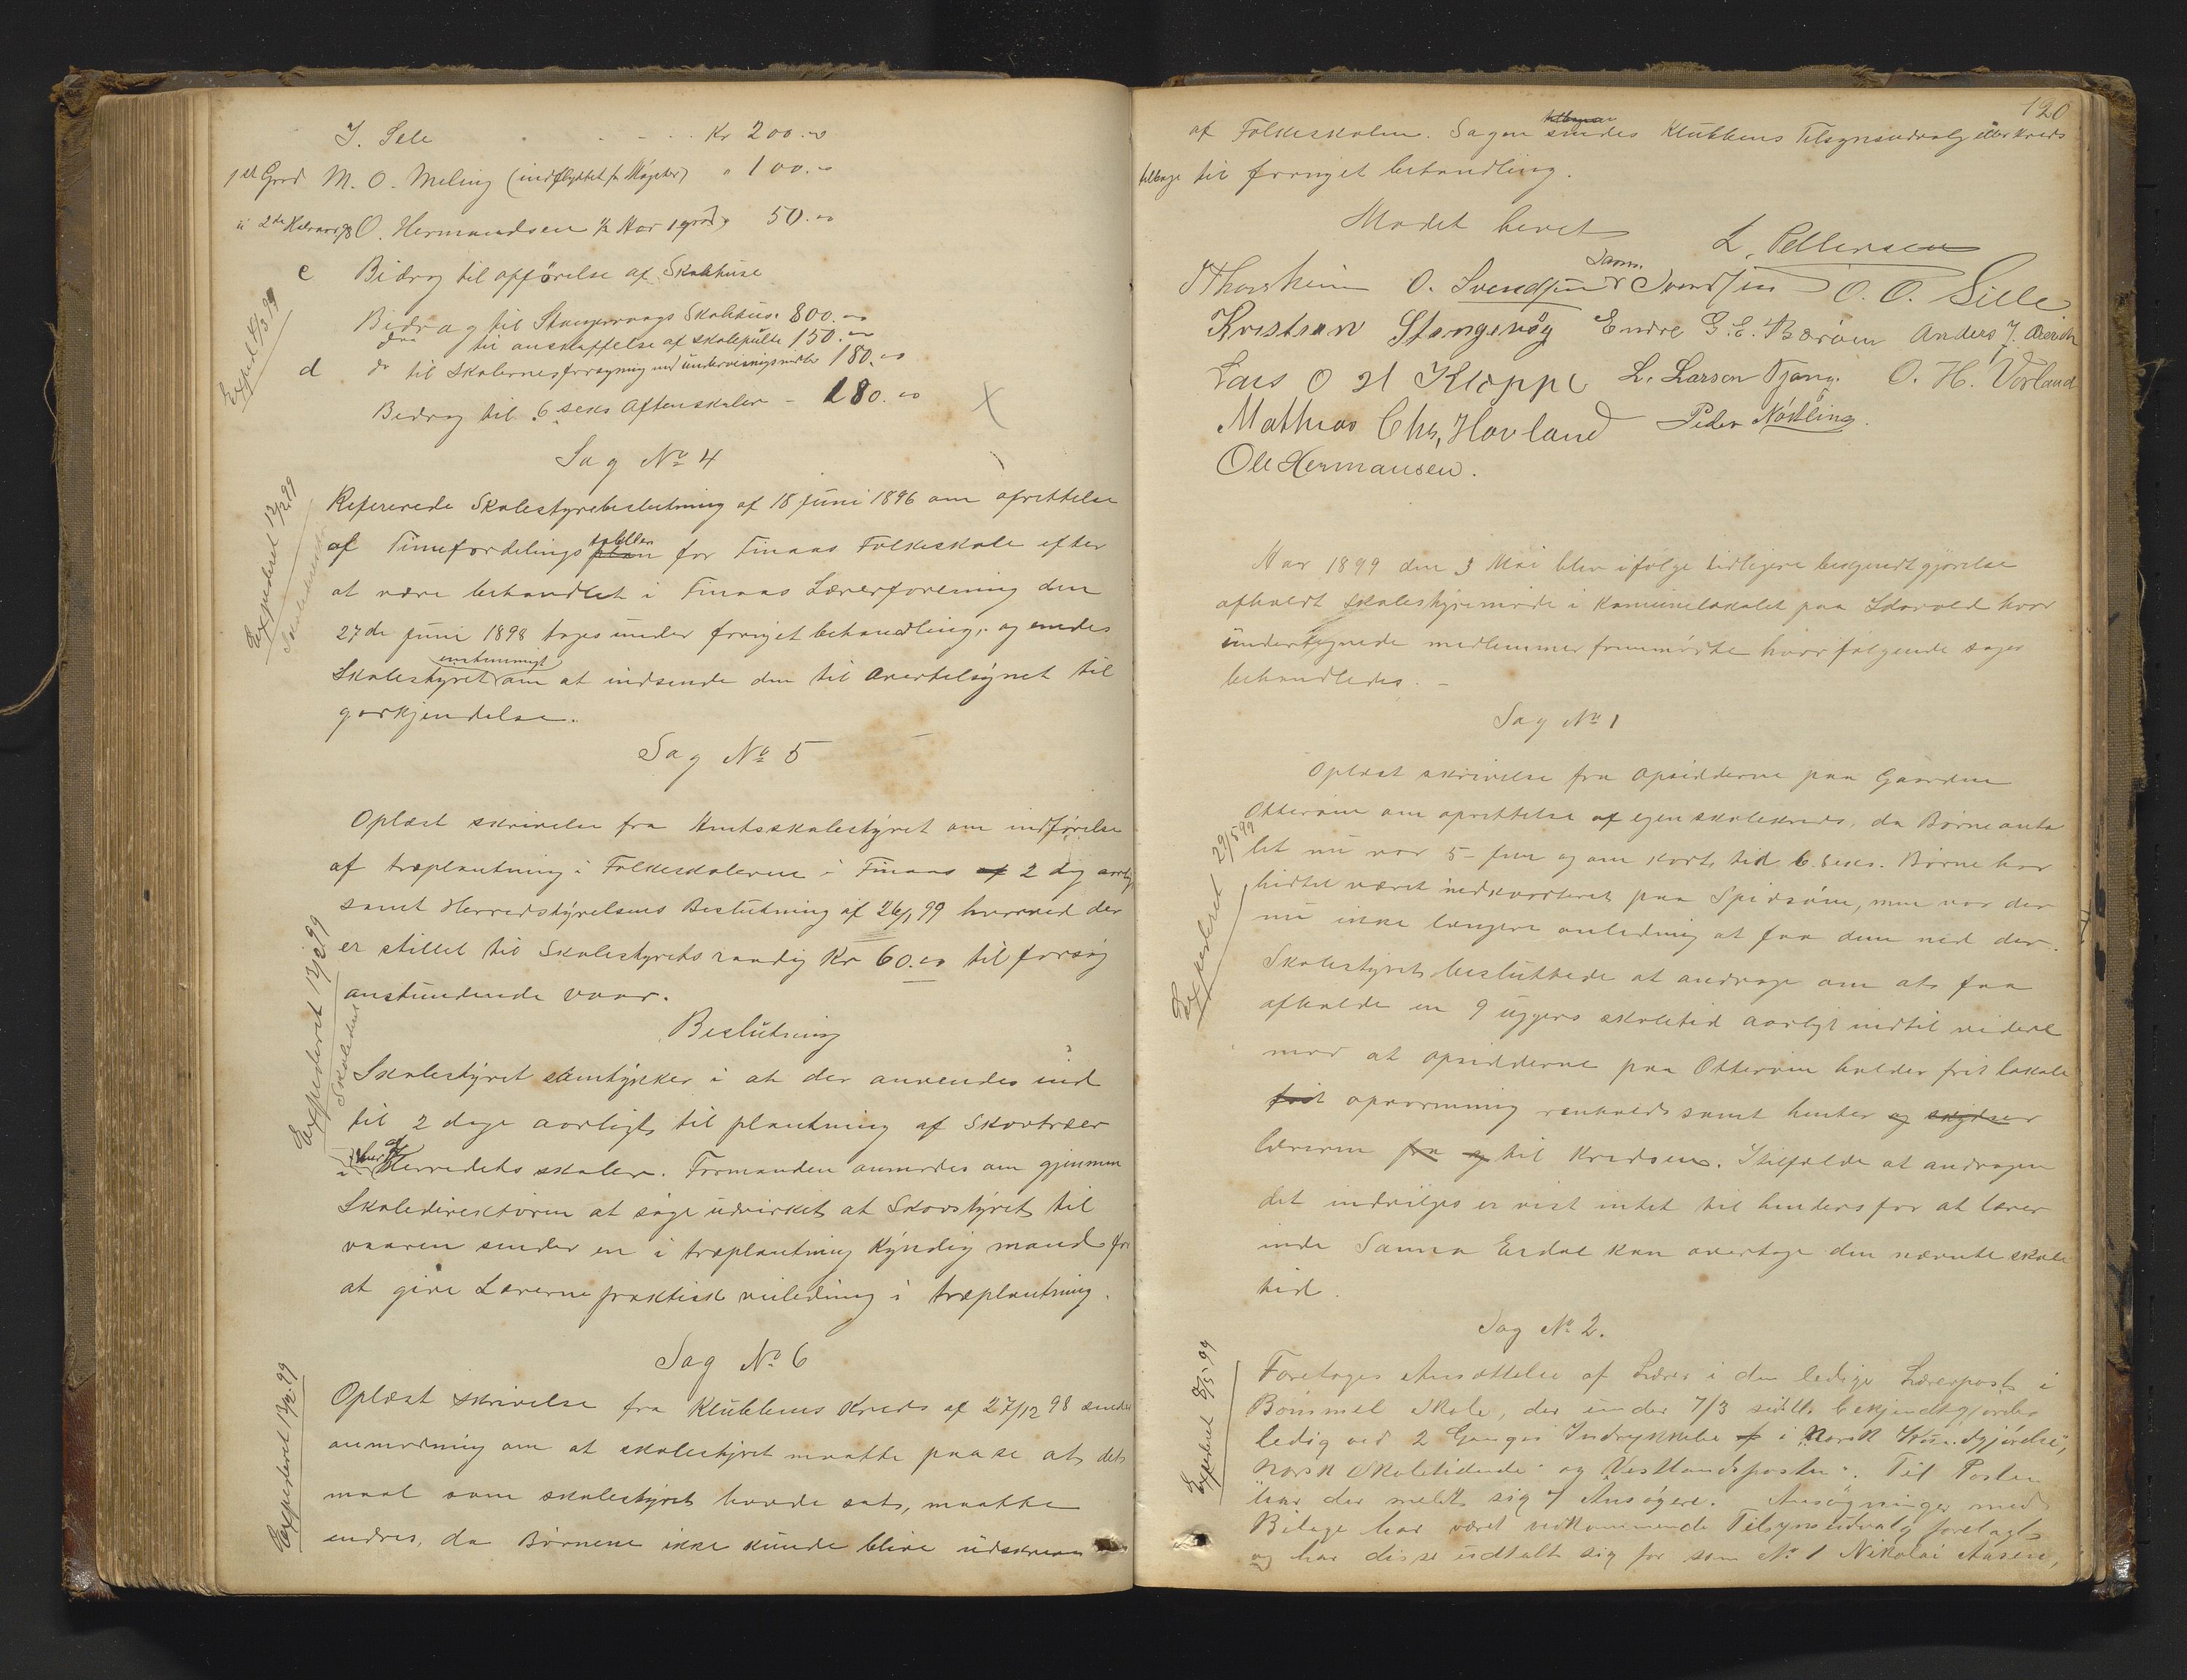 J. Sele . . . . Kr 200.00
1st Grad M. O. Meling (indflyttet fr Møgster) " 100.00
O. Hermandsen ½ Aar 1 grad " 50.00
c Bidrag til opförelse af Skolehuse
Expedt 8/3 99
Bidrag til Stangervaags Skolehus. 800.00
do til anskaffelse af skolepulte 150.00
d do til Skolernes forsyning med undervisningsmidler 180.00
Bidrag til 6 seks Aftenskoler - 180.00
Sag No 4
Expederet 13/2 99
Refererede Skolestyrebeslutning af 18 Juni 1896 om oprettelse
af Timefordelings tabellen plan for Finaas Folkeskole efter
at være behandlet i Finaas Lærerforening den
27de Juni 1898 toges under fornyet behandling, og enedes
Skolestyret enstemmigt om at indsende den til Overtilsynet til
godkjendelse.
Sag No 5
Oplæst skrivelse fra Amtsskolestyret om indförelse
af træplantning i Folkeskolerne i Finaas af 2 dg aarlig
samt Herredstyrelsens Beslutning af 26/1 99 hvorved der
er stillet til Skolestyrets raadig Kr 60.00 til forsøg
anstundende vaar.
Beslutning
Expederet 13/2 99
Skoledirek
Skolestyret samtykker i at der anvendes ind
til 2 dage aarligt til plantning af Skovtræer
i hver af Herredets skoler. Formanden anmodes om gjennem
Skoledirektören at söge udvirket at Skovstyret til
vaaren sender en i træplantning kyndig mand for
at give Lærerne praktisk veiledning i træplantning.
Sag No 6
Expederet 13/2 99
Oplæst skrivelse fra Klubbens Kreds af 27/12 98
anmodning om at skolestyret maatte paase at det
maal som skolestyret havde sat, maatte
endres, da Børnene ikke kunde blive udskreven
120
af Folkeskolen. Sagen sendes Klubbens Tilsynsudvalg Kreds
tilbage til fornyet behandling.
Mødet hevet
L. Pettersen
Thorsheim O. Svendsen O. O. Sille
Kristian Stangevåg Endre G. E. Børøen Anders J.
Lars O St Kloppe L. Larson Tjong. O. H. Vorland
Mathias Chr. Hovland Peder Nöstling.
Ole Hermansen.
Aar 1899 den 3 Mai blev ifølge tidligere bekjendtgjørelse
afholdt skolestyremøde i Kommunelokalet paa Idavold hvor
undertegnede medlemmer fremmødte hvor følgende sager
behandledes. -
Sag No 1
Expederet 29/5 99
Oplæst skrivelse fra Opsidderne paa Gaarden
Otterøen om oprettelse af egen skolekreds, da Børneanta
let nu var 5 - fem og om kort tid 6 seks. Børne har
hidtil været indkvarteret paa Spidsøen, men var der
nu ikke længere anledning at faa dem ned der.
Skolestyret besluttede at andrage om at faa
afholde en 9 ugers skoletid aarligt indtil videre
mod at opsidderne paa Otterøen holder frit lokale
frit opvarmning renhold samt henter og skydser
lærerne fra og til Kredsen. I tilfælde at andragen
det indvilges er vist intet til hinders for at lærer
inde Sanna Eidal kan overtage den nævnte skole
tid.
Sag No 2.
Expederet 8/5 99
Foretoges Ansættelse af Lærer i den ledige Lærerpost i
Bömmel Skole, der under 7/3 sidstl. bekjendtgjordes
ledig ved 2 Ganges Indrykkelse af i "Norsk Kundgjörelse",
"Norsk Skoletidende" og "Vestlandsposten". Til Posten
har der meldt sig 7 Ansøgere. Ansøgninger med
Bilage har været vedkommende Tilsynsudvalg forelagt
og har disse udtalt sig for som No 1 Nikolai Aasen,